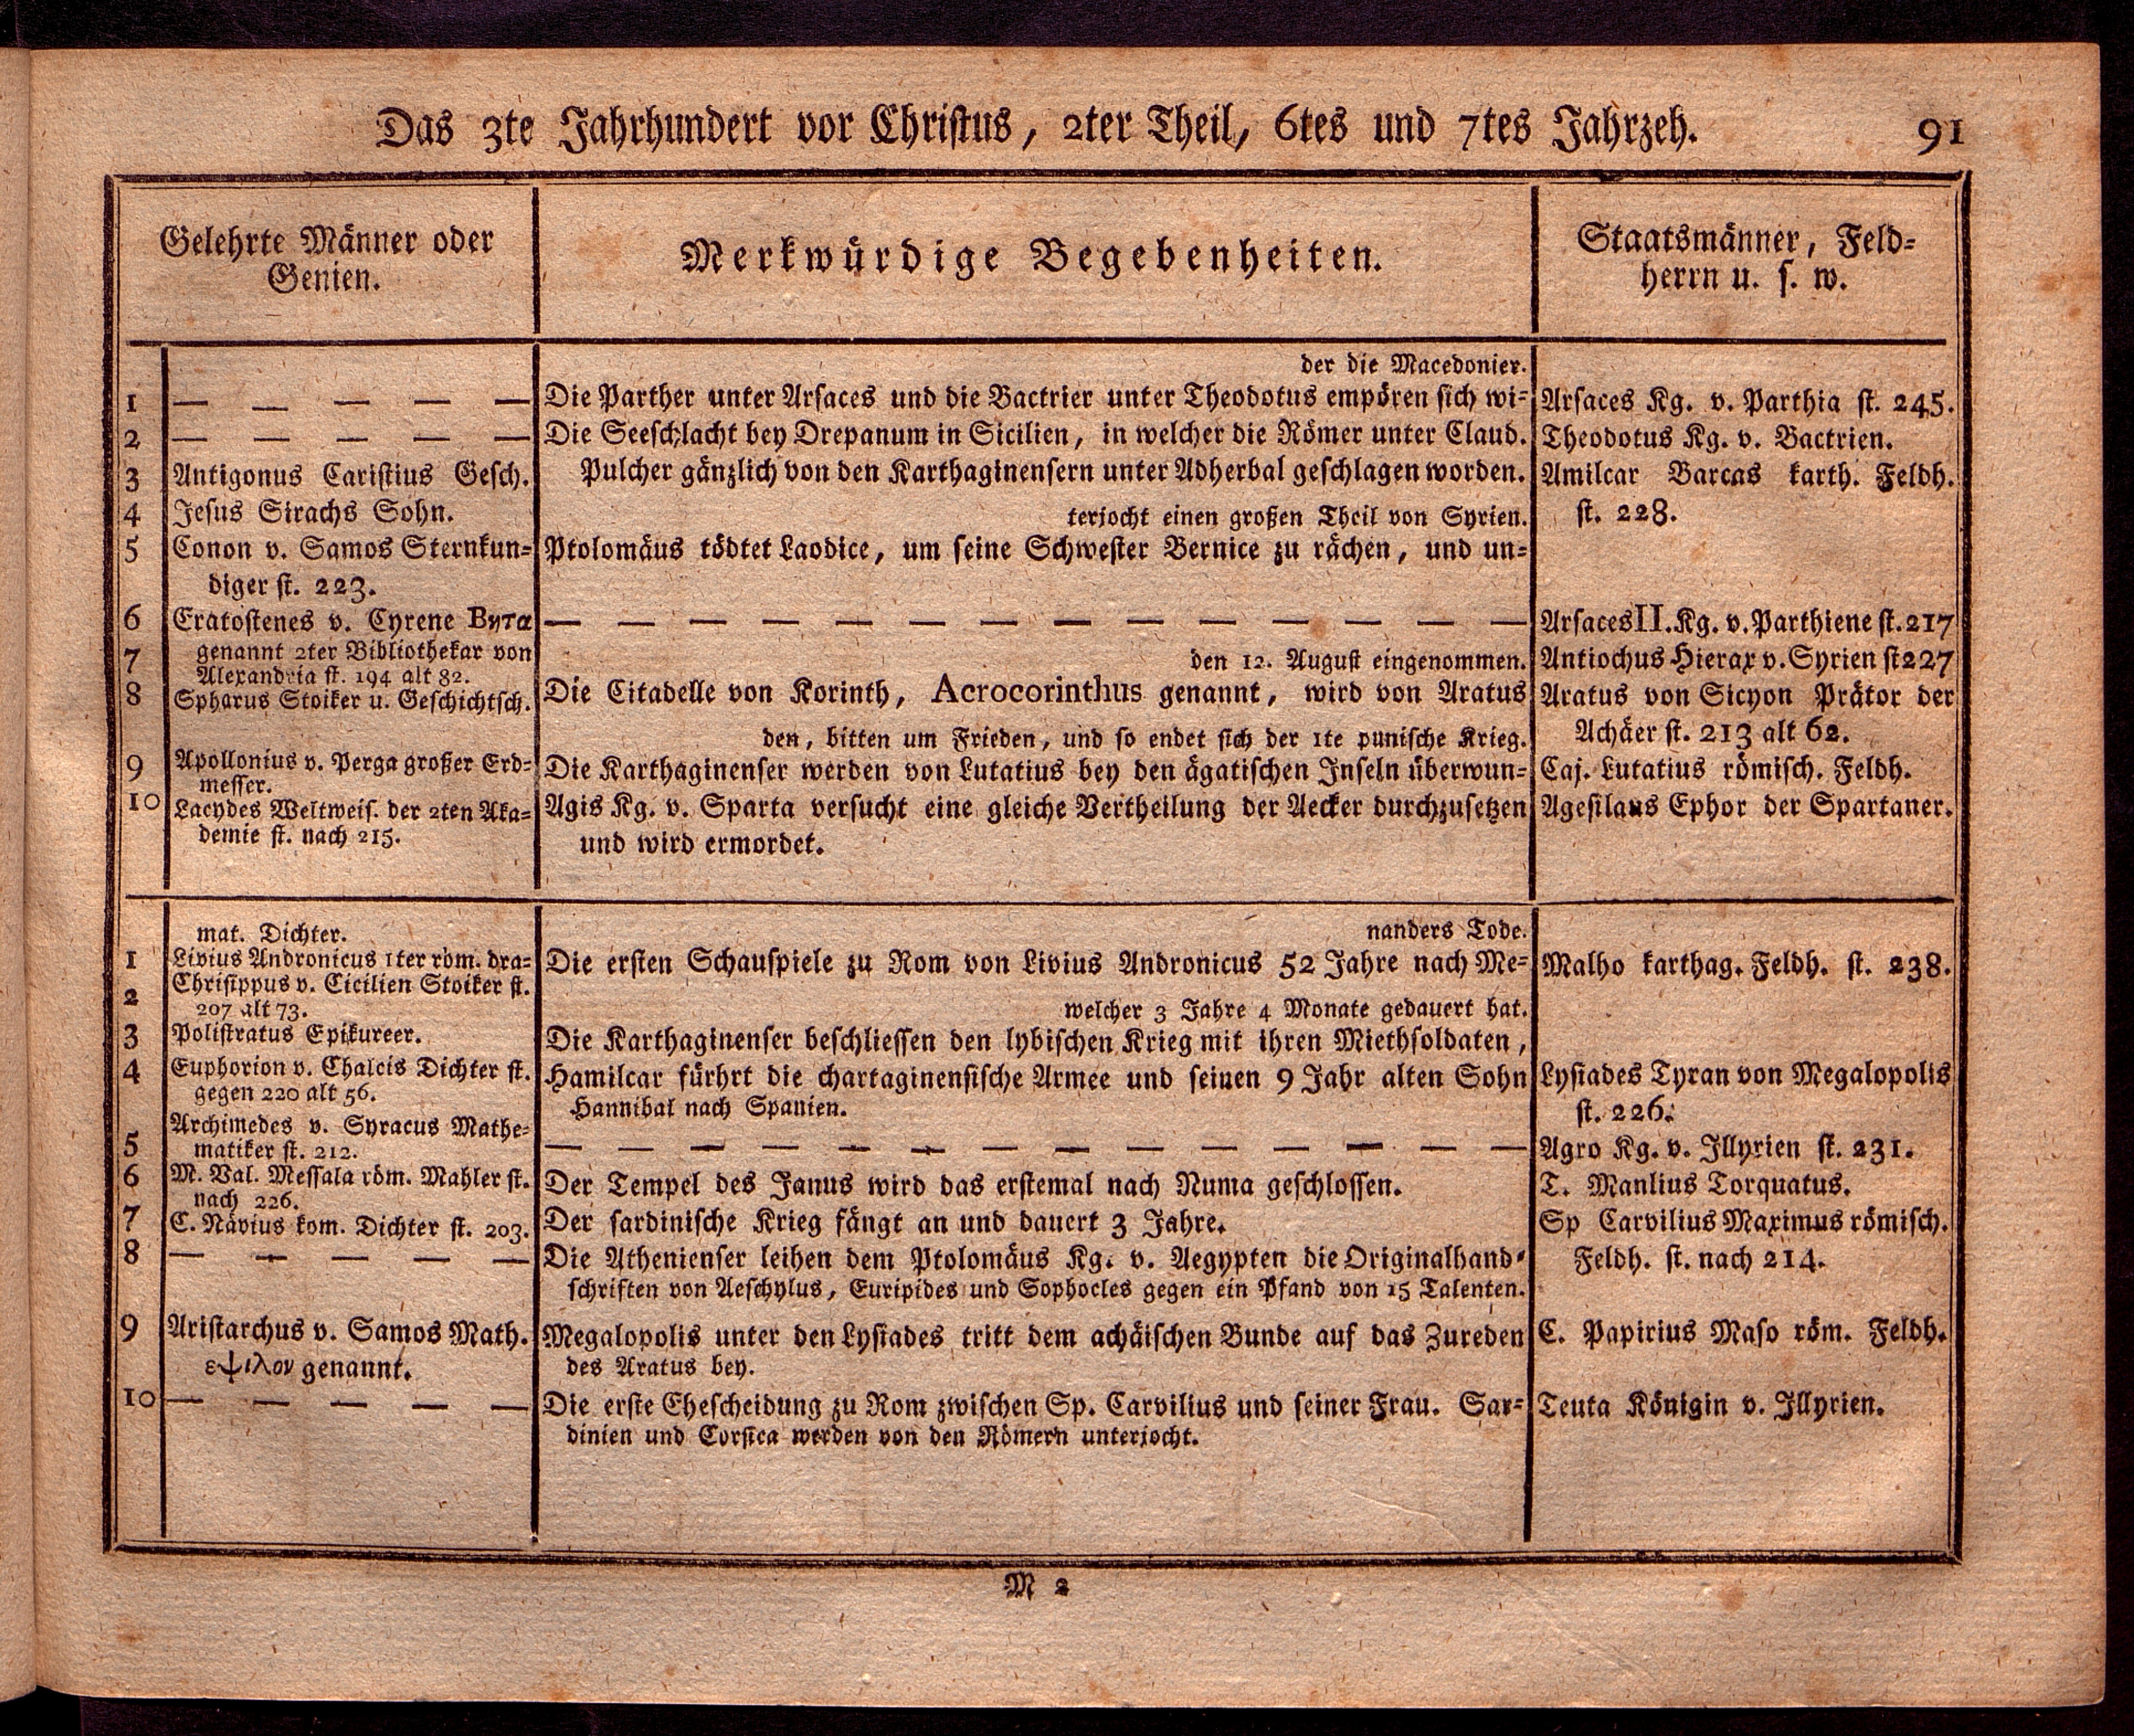 Das 3te Jahrhundert vor Christus, 2ter Theil, 6tes und 7tes Jahrzeh.
91
Gelehrte Männer oder
Genien.
Merkwürdige Begebenheiten.
Staatsmänner, Feld-
herrn u. s. w.
1 — — — — —
2 — — — — —
3 Antigonus Caristius Gesch.
4 Jesus Sirachs Sohn.
5 Conon v. Samos Sternkun-
diger st. 223.
6 Eratostenes v. Cyrene Βητα
7 genannt 2ter Bibliothekar von
Alexandria st. 194 alt 82.
8 Spharus Stoiker u. Geschichtsch.
9 Apollonius v. Perga großer Erd-
messer.
10 Lacydes Weltweis. der 2ten Aka-
demie st. nach 215.
der die Macedonier.
Die Parther unter Arsaces und die Bactrier unter Theodotus empören sich wi-
Die Seeschlacht bey Drepanum in Sicilien, in welcher die Römer unter Claud.
Pulcher gänzlich von den Karthaginensern unter Adherbal geschlagen worden.
terjocht einen großen Theil von Syrien.
Ptolomäus tödtet Laodice, um seine Schwester Bernice zu rächen, und un-
— — — — — — — — — — — — — —
den 12. August eingenommen.
Die Citadelle von Korinth, Acrocorinthus genannt, wird von Aratus
den, bitten um Frieden, und so endet sich der 1te punische Krieg.
Die Karthaginenser werden von Lutatius bey den ägatischen Inseln überwun-
Agis Kg. v. Sparta versucht eine gleiche Vertheilung der Aecker durchzusetzen
und wird ermordet.
Arsaces Kg. v. Parthia st. 245.
Theodotus Kg. v. Bactrien.
Amilcar Barcas karth. Feldh.
st. 228.
Arsaces II. Kg. v. Parthiene st. 217
Antiochus Hierax v. Syrien st 227
Aratus von Sicyon Prätor der
Achäer st. 213 alt 62.
Caj. Lutatius römisch. Feldh.
Agesilaus Ephor der Spartaner.
mat. Dichter.
1 Livius Andronicus 1ter röm. dra-
Chrisippus v. Cicilien Stoiker st.
2 207 alt 73.
3 Polistratus Epikureer.
4 Euphorion v. Chalcis Dichter st.
gegen 220 alt 56.
Archimedes v. Syracus Mathe-
5 matiker st. 212.
6 M. Val. Messala röm. Mahler st.
nach 226.
7 C. Nävius kom. Dichter st. 203.
8 — — — — —
9 Aristarchus v. Samos Math.
εψιλον genannt.
10 — — — — —
nanders Tode.
Die ersten Schauspiele zu Rom von Livius Andronicus 52 Jahre nach Me-
welcher 3 Jahre 4 Monate gedauert hat.
Die Karthaginenser beschliessen den lybischen Krieg mit ihren Miethsoldaten,
Hamilcar fürhrt die chartaginensische Armee und seinen 9 Jahr alten Sohn
Hannibal nach Spanien.
— — — — — — — — — — — — — —
Der Tempel des Janus wird das erstemal nach Numa geschlossen.
Der sardinische Krieg fängt an und dauert 3 Jahre.
Die Athenienser leihen dem Ptolomäus Kg. v. Aegypten die Originalhand-
schriften von Aeschylus, Euripides und Sophocles gegen ein Pfand von 15 Talenten.
Megalopolis unter den Lysiades tritt dem achäischen Bunde auf das Zureden
des Aratus bey.
Die erste Ehescheidung zu Rom zwischen Sp. Carvilius und seiner Frau. Sar-
dinien und Corsica werden von den Römern unterjocht.
Malho karthag. Feldh. st. 238.
Lysiades Tyran von Megalopolis
st. 226.
Agro Kg. v. Illyrien st. 231.
T. Manlius Torquatus.
Sp Carvilius Maximus römisch.
Feldh. st. nach 214.
C. Papirius Maso röm. Feldh.
Teuta Königin v. Illyrien.
M 2